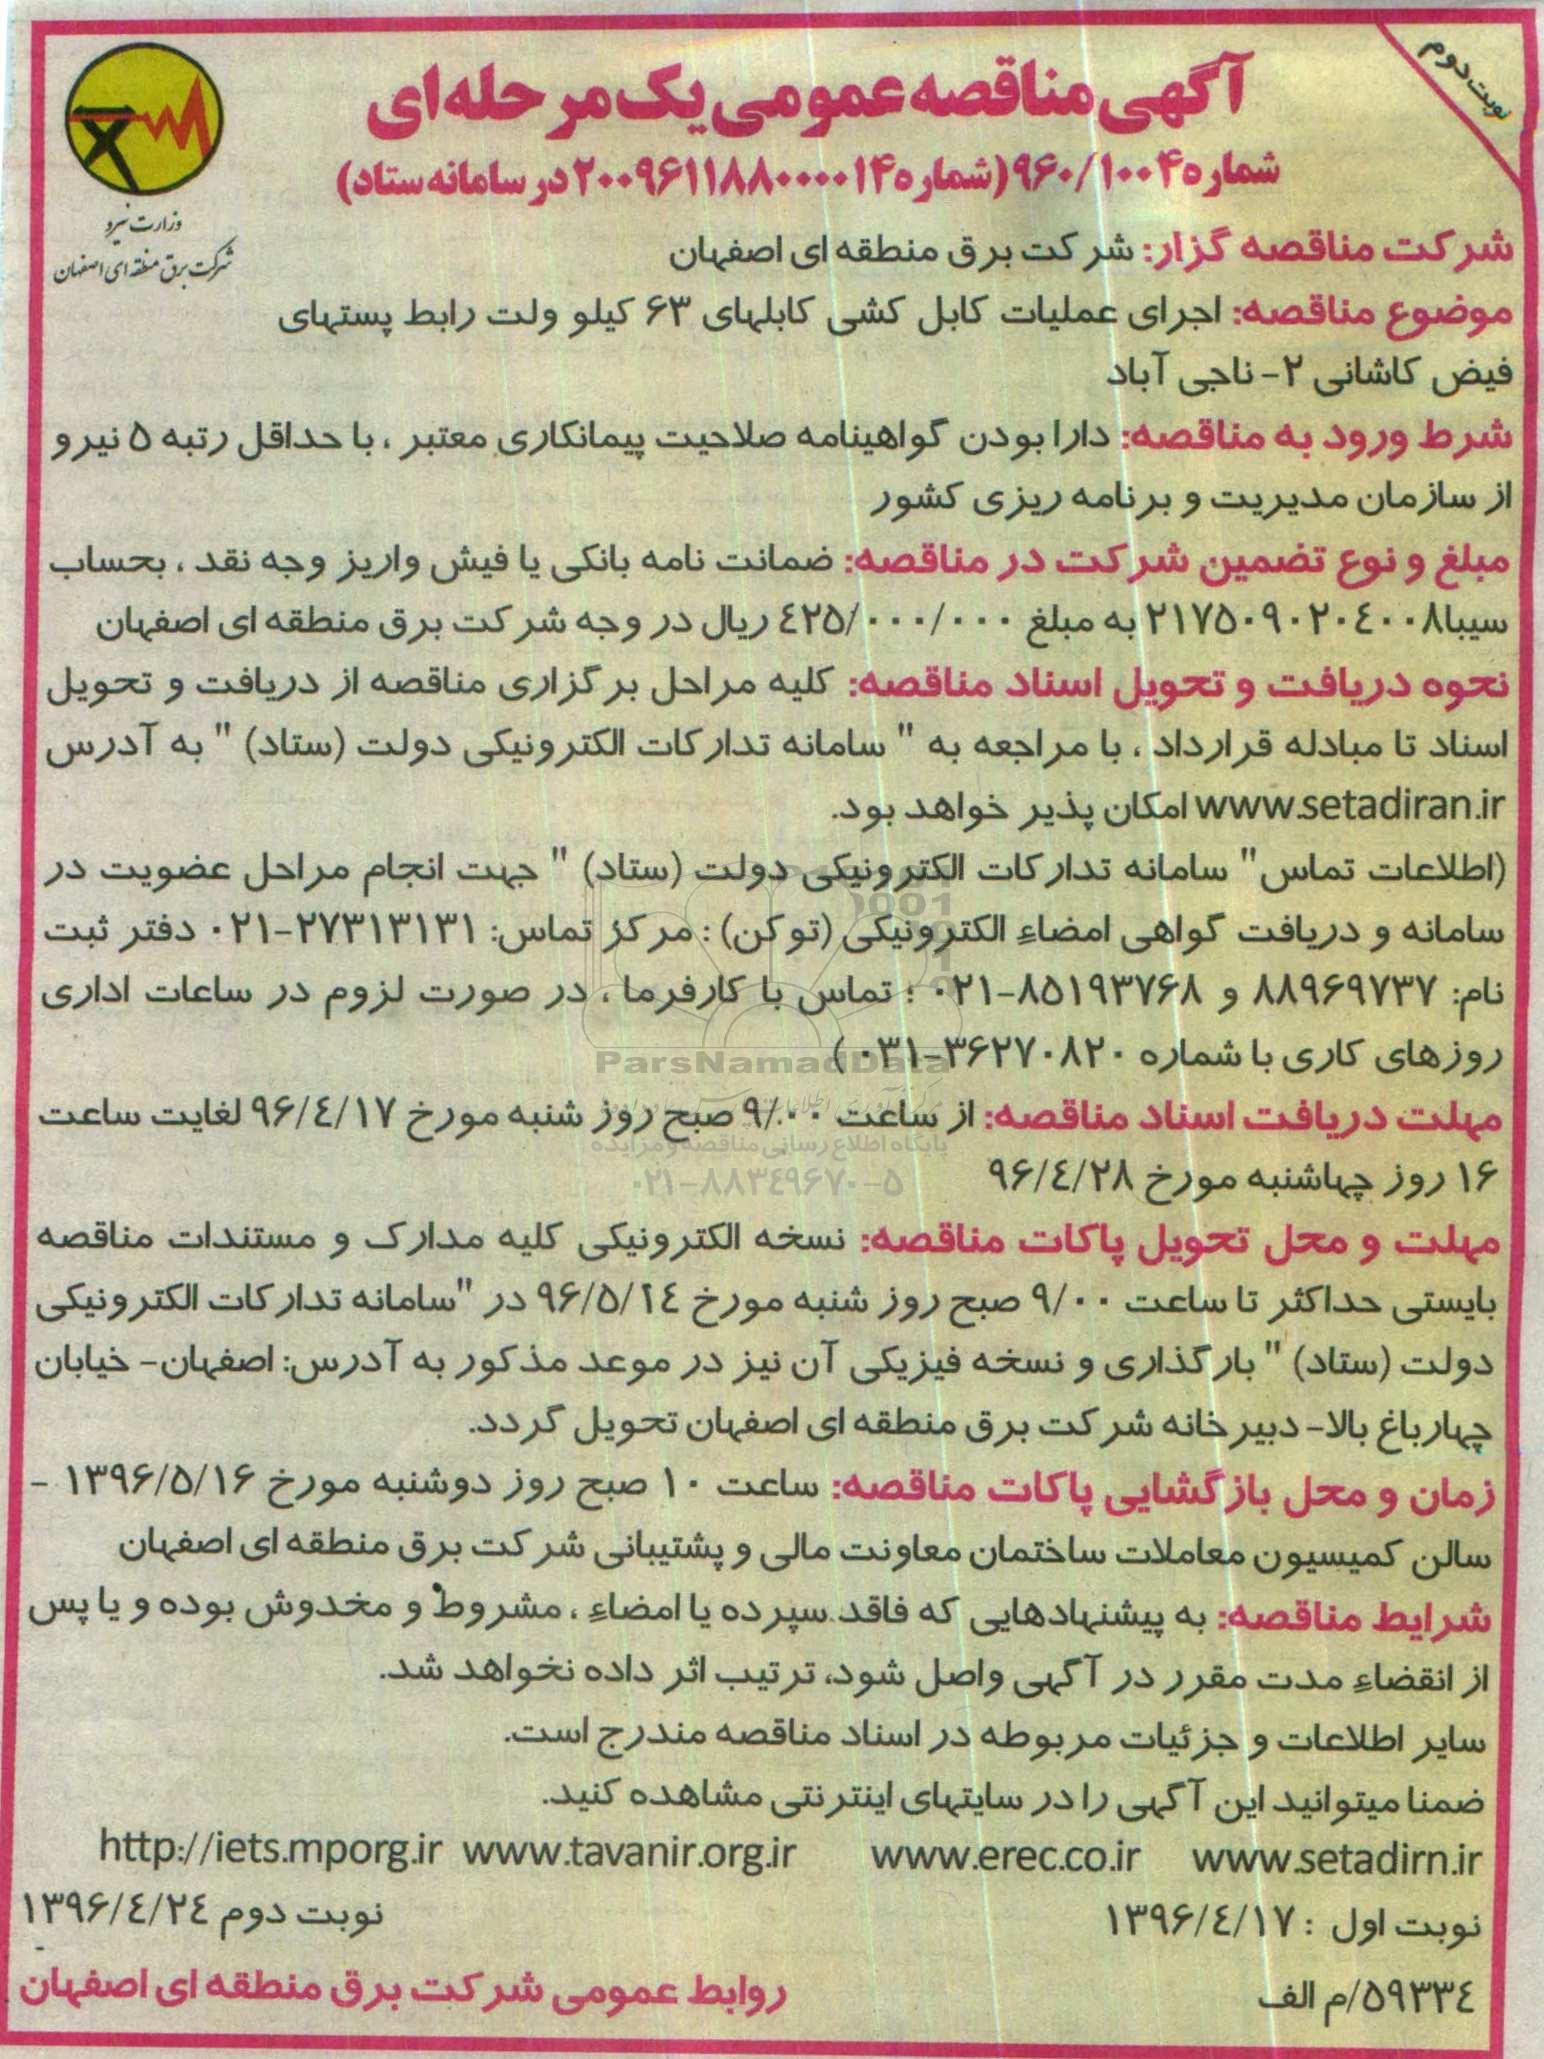 نوبت دوم
آگهی مناقصه عمومی یک مرحله ای
شماره ۹۶۰/۱۰۰۴ (شماره ۲۰۰۹۶۱۱۸۸۰۰۰۰۱۴ در سامانه ستاد)
وزارت نیرو
شرکت برق منطقه ای اصفهان
شرکت مناقصه گزار: شرکت برق منطقه ای اصفهان
موضوع مناقصه: اجرای عملیات کابل کشی کابلهای ۶۳ کیلو ولت رابط پستهای
فیض کاشانی ۲- ناجی آباد
شرط ورود به مناقصه: دارا بودن گواهینامه صلاحیت پیمانکاری معتبر ، با حداقل رتبه ۵ نیرو
از سازمان مدیریت و برنامه ریزی کشور
مبلغ و نوع تضمین شرکت در مناقصه: ضمانت نامه بانکی یا فیش واریز وجه نقد ، بحساب
سیبا۲۱۷۵۰۹۰۲۰۴۰۰۸ به مبلغ ۴۲۵/۰۰۰/۰۰۰ ریال در وجه شرکت برق منطقه ای اصفهان
نحوه دریافت و تحویل اسناد مناقصه: کلیه مراحل برگزاری مناقصه از دریافت و تحویل
اسناد تا مبادله قرارداد ، با مراجعه به " سامانه تدارکات الکترونیکی دولت (ستاد) " به آدرس
www.setadiran.ir امکان پذیر خواهد بود.
(اطلاعات تماس" سامانه تدارکات الکترونیکی دولت (ستاد) " جهت انجام مراحل عضویت در
سامانه و دریافت گواهی امضاء الکترونیکی (توکن) : مرکز تماس: ۲۷۳۱۳۱۳۱-۰۲۱ دفتر ثبت
نام: ۸۸۹۶۹۷۳۷ و ۸۵۱۹۳۷۶۸-۰۲۱ ؛ تماس با کارفرما ، در صورت لزوم در ساعات اداری
روزهای کاری با شماره ۳۶۲۷۰۸۲۰-۰۳۱ )
ParsNamadData
مهلت دریافت اسناد مناقصه: از ساعت ۹/۰۰ صبح روز شنبه مورخ ۹۶/۴/۱۷ لغایت ساعت
پایگاه اطلاع رسانی مناقصه و مزایده
۱۶ روز چهاشنبه مورخ ۹۶/۴/۲۸
۰۲۱-۸۸۳۴۹۶۷۰-۵
مهلت و محل تحویل پاکات مناقصه: نسخه الکترونیکی کلیه مدارک و مستندات مناقصه
بایستی حداکثر تا ساعت ۹/۰۰ صبح روز شنبه مورخ ۹۶/۵/۱۴ در "سامانه تدارکات الکترونیکی
دولت (ستاد) " بارگذاری و نسخه فیزیکی آن نیز در موعد مذکور به آدرس: اصفهان- خیابان
چهارباغ بالا- دبیرخانه شرکت برق منطقه ای اصفهان تحویل گردد.
زمان و محل بازگشایی پاکات مناقصه: ساعت ۱۰ صبح روز دوشنبه مورخ ۱۳۹۶/۵/۱۶ -
سالن کمیسیون معاملات ساختمان معاونت مالی و پشتیبانی شرکت برق منطقه ای اصفهان
شرایط مناقصه: به پیشنهادهایی که فاقد سپرده یا امضاء ، مشروط و مخدوش بوده و یا پس
از انقضاء مدت مقرر در آگهی واصل شود، ترتیب اثر داده نخواهد شد.
سایر اطلاعات و جزئیات مربوطه در اسناد مناقصه مندرج است.
ضمنا میتوانید این آگهی را در سایتهای اینترنتی مشاهده کنید.
www.setadirn.ir www.erec.co.ir www.tavanir.org.ir http://iets.mporg.ir
نوبت اول : ۱۳۹۶/۴/۱۷ نوبت دوم ۱۳۹۶/۴/۲۴
۵۹۳۳۴/م الف
روابط عمومی شرکت برق منطقه ای اصفهان